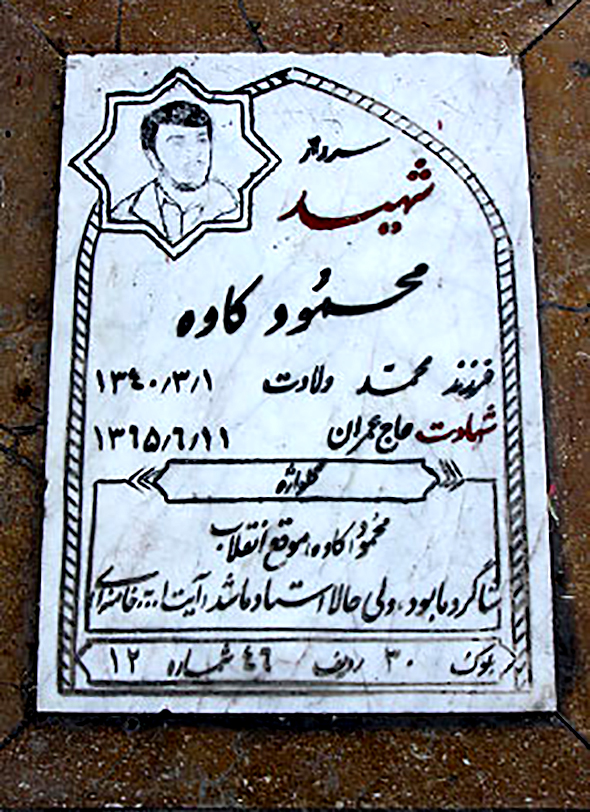 سردار
شهید
محمود کاوه
فرزند محمّد ولادت ۱۳٤۰/۳/۱
شهادت حاج عمران ۱۳٦۵/٦/۱۱
گلواژه
محمود کاوه، موقع انقلاب
شاگرد ما بود، ولی حالا استاد ما شد، آیت ا... خامنه‌ای
بلوک ۳۰ ردیف ٤٦ شماره ۱۲